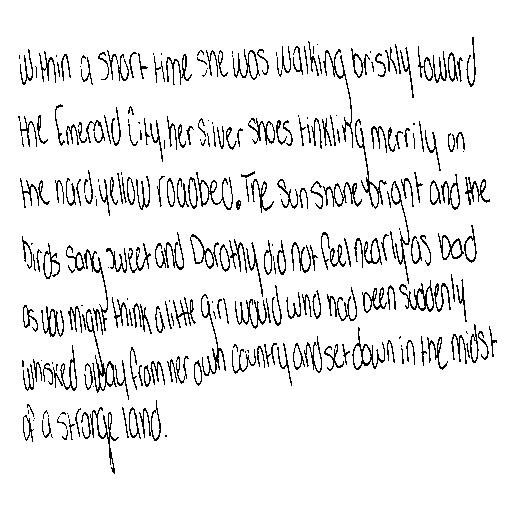 Within a short time she was walking briskly toward
the Emerald City, her silver shoes tinkling merrily on
the hard, yellow roadbed. The sun shone bright and the
birds sang sweet and Dorothy did not feel nearly as bad
as you might think a little girl would who had been suddenly
whisked away from her own country and set down in the midst
of a strange land.